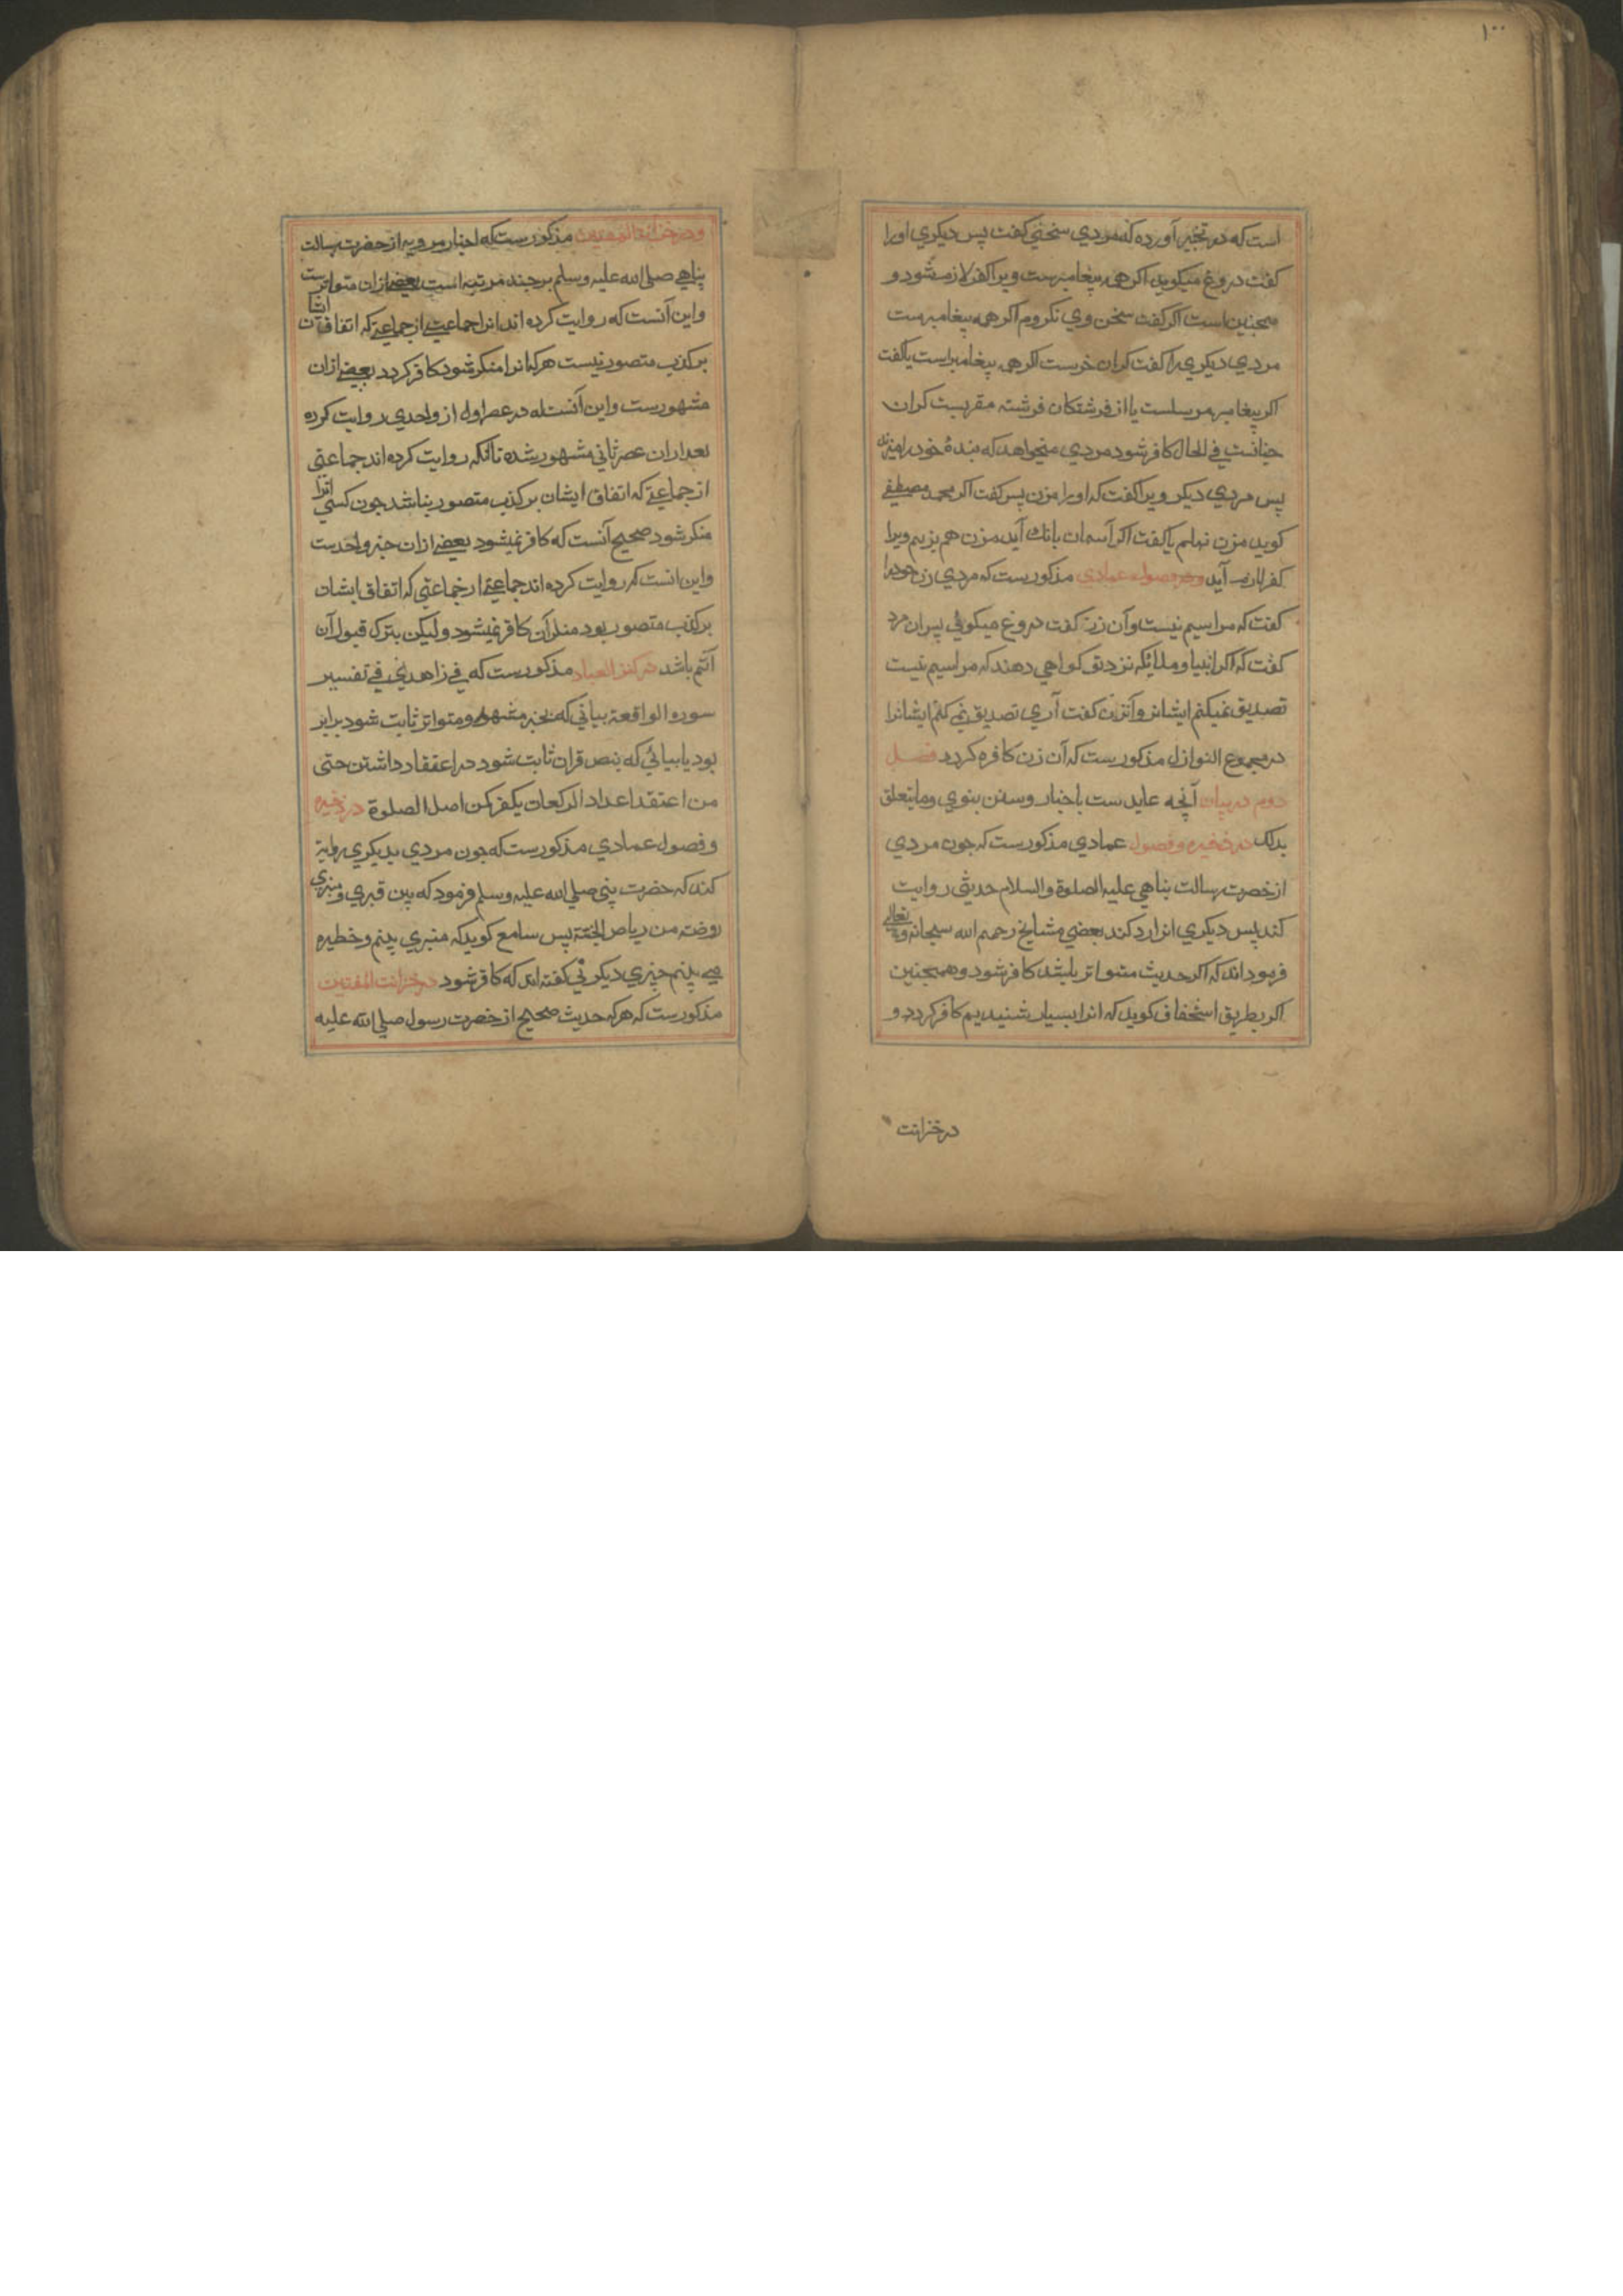 ١٠٠
است که در تخیر آورده که مردي سخني کفت پس دیکري اورا
کفت دروغ میکوید اکر همه پیغامبرست ویرا کفر لازم شود و
همچنین است اکر کفت سخن وي نکروم اکر همه پیغامبرست
مردي دیکري را کفت کران خرست اکر همه پیغامبراست یا کفت
اکر پیغامبر مرسلست یا از فرشتکان فرشته مقربست کران
في الحال کافر شود مردي میخواهد که بنده خود را
پس مردي دیکر ویرا کفت که اورا مزن پس کفت اکر محمد مصطفي
کوید مزن نهلم یا کفت اکر آسمان بانك آید مزن هم بزنم ویرا
کفر لازم آید ودر فصول عمادي مذکورست که مردي زن خودرا
کفت که مرا سیم نیست وآن زن کفت دروغ میکوئي پس ان مرد
کفت که اکر انبیا وملائکه نزد تو کواهي دهند که مرا سیم نیست
تصدیق نمیکنم ایشانرا وآنزن کفت آري تصدیق نمي کنم ایشانرا
در مجموع النوازل مذکورست که آن زن کافره کردد فصل
دوم در بیان آنچه عایدست باخبار وسنن نبوي وما یتعلق
بذلك در ذخیره وفصول عمادي مذکورست که چون مردي
از حضرت رسالت پناهي علیه الصلوة والسلام حدیثي روایت
کند پس دیکري انرا رد کند بعضي مشایخ رحمهم الله سبحانه وتعالي
فرموده اند که اکر حدیث متواتر باشد کافر شود وهمچنین
اکر بطریق استخفاف کوید که انرا بسیار شنیدیم کافر کردد و
در خزانت
ودر خزانة المفتین مذکورست که اخبار مرویه از حضرت رسالت
پناهي صلي الله علیه وسلم بر چند مرتبه است بعضي ازان متواترست
واین آنست که روایت کرده اند انرا جماعتي از جماعتي که اتفاق ایشان
بر کذب متصور نیست هرکه انرا منکر شود کافر کردد بعضي ازان
مشهورست واین آنست که در عصر اول از واحدي روایت کرده
بعد ازان عصر ثاني مشهور شده تا آنکه روایت کرده اند جماعتي
از جماعتي که اتفاق ایشان بر کذب متصور نباشد چون کسي انرا
منکر شود صحیح آنست که کافر نمیشود بعضي ازان خبر واحدست
واین انست که روایت کرده اند جماعتي از جماعتي که اتفاق ایشان
بر کذب متصور بود منکر آن کافر نمیشود ولیکن بترك قبول آن
آثم باشد در کنز العباد مذکورست که في زاهدي في تفسیر
سوره الواقعة بیاني که بخبر مشهور ومتواتر ثابت شود برابر
بود با بیاني که بنص قران ثابت شود در اعتقاد داشتن حتی
من اعتقد اعداد الرکعات یکفر کمن اصل الصلوة در ذخیره
وفصول عمادي مذکورست که چون مردي بدیکري روایة
کند که حضرت نبي صلي الله علیه وسلم فرمود که بین قبري ومنبري
روضة من ریاض الجنة پس سامع کوید که منبري بینم وخطیره
مي بینم چیزي دیکر ني کفته اند که کافر شود در خزانت المفتین
مذکورست که هرکه حدیث صحیح از حضرت رسول صلي الله علیه